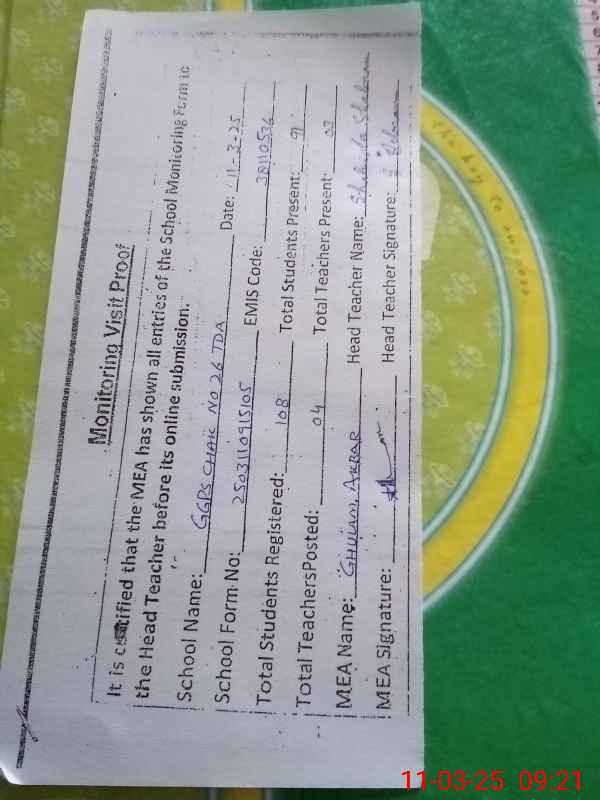 Monitoring Visit Proof
It is certified that the MEA has shown all entries of the School Monitoring Form to
the Head Teacher before its online submission.
School Name: GGPS CHAK NO 26 TDA Date: 11-3-25
School Form No: 2503110915105 EMIS Code: 38110536
Total Students Registered: 108 Total Students Present: 91
Total Teachers Posted: 04 Total Teachers Present: 03
MEA Name: GHULAM AKBAR Head Teacher Name: Shahida Shabnam
MEA Signature: Head Teacher Signature:
11-03-25 09:21